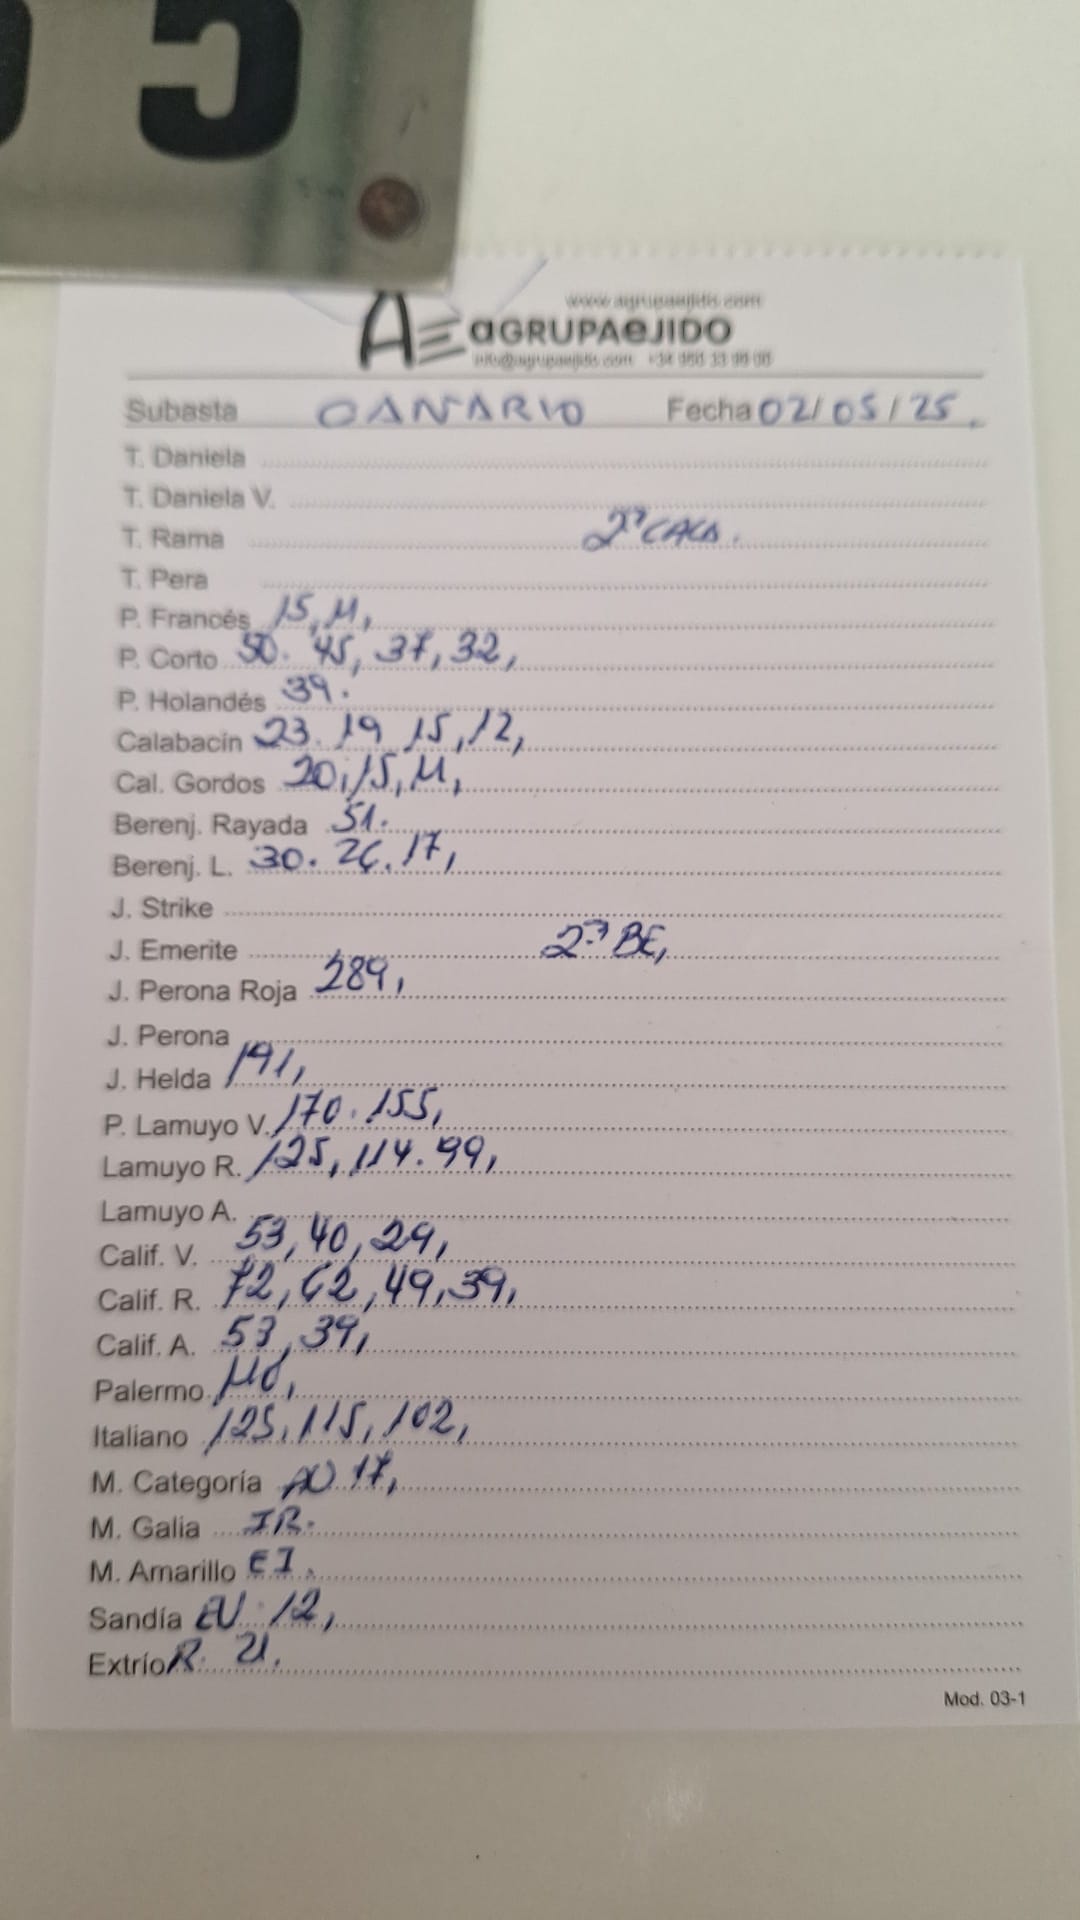 5
www.agrupaejido.com
AE aGRUPAeJIDO
info@agrupaejido.com
Subasta CANARIO Fecha 02/05/25.
T. Daniela
T. Daniela V.
T. Rama 2ª CALA.
T. Pera
P. Francés 15, 11,
P. Corto 50. 45, 37, 32,
P. Holandés 39.
Calabacín 23. 19 15, 12,
Cal. Gordos 20, 15, 11,
Berenj. Rayada 51.
Berenj. L. 30. 26. 17,
J. Strike
J. Emerite 2ª BE,
J. Perona Roja 289,
J. Perona
J. Helda 191,
P. Lamuyo V. 170. 155,
Lamuyo R. 125, 114. 99,
Lamuyo A.
Calif. V. 53, 40, 29,
Calif. R. 72, 62, 49, 39,
Calif. A. 53, 39,
Palermo
Italiano 125, 115, 102,
M. Categoría 17,
M. Galia IR.
M. Amarillo
Sandía 12,
Extrío R. 21.
Mod. 03-1